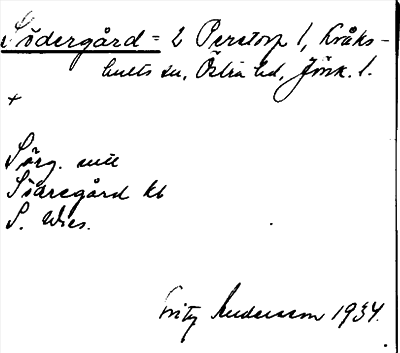 Södergård = 2 Perstorp 1, Kråks-
hults sn, Östra hd, Jönk. l.
+
Sörg.
Söaregård kb
S. Wies.
Fritz Andersson 1934.